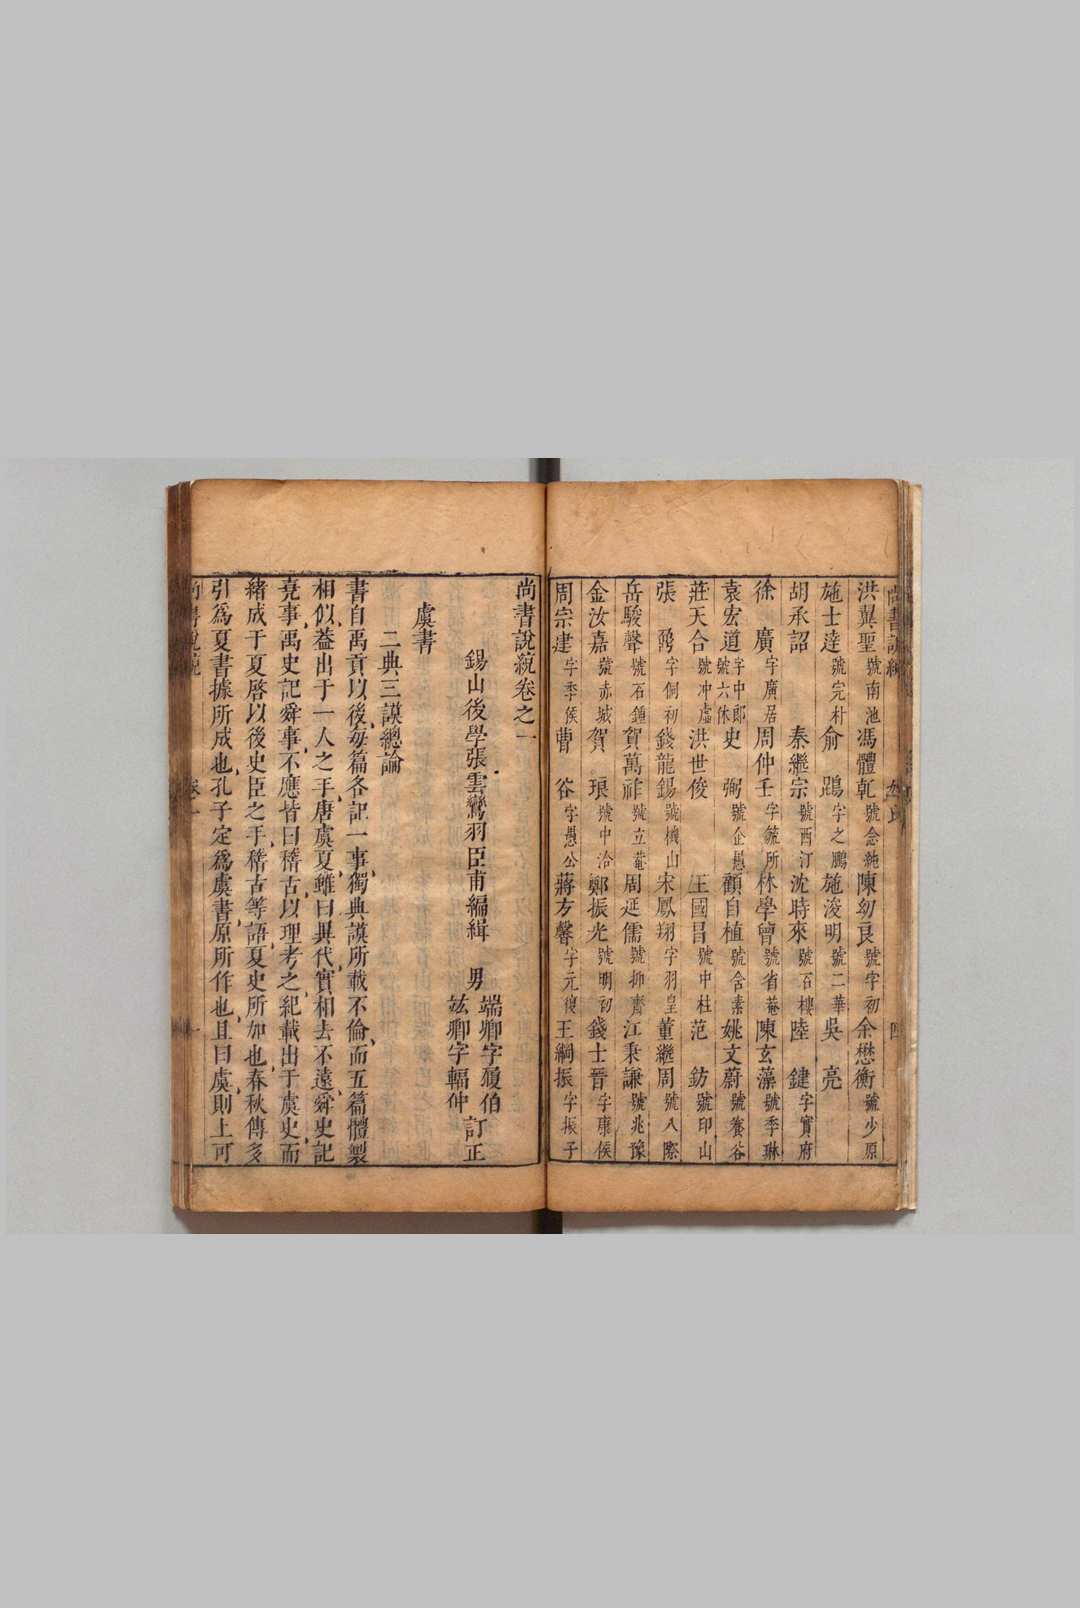 尚書說統
四
洪翼聖號南池 馮體乾號念純 陳幼良號字初 余懋衡號少原
施士達號完村 俞鵾字之鵬 施浚明號二華 吳亮
胡承詔 秦繼宗號西汀 沈時來號石樓 陸鍵字實府
徐廣字廣居 周仲士字毓所 林學曾號省菴 陳玄藻號季琳
袁宏道字中郎號六休 史弼號企愚 顧自植號含素 姚文蔚號養谷
莊天合號冲虛 洪世俊 王國昌號中杜 范鈁號印山
張鼐字侗初 錢龍錫號機山 宋鳳翔字羽皇 董繼周號八際
岳駿聲號石鍾 賀萬祚號立菴 周延儒號挹齋 江秉謙號兆豫
金汝嘉號赤城 賀琅號中洽 鄭振光號明初 錢士晉字康侯
周宗建字季侯 曹谷字愚公 蔣方馨字元復 王綱振字振子
尚書說統卷之一
錫山後學張雲鸞羽臣甫編緝 男端卿字履伯竑卿字輻仲訂正
虞書
二典三謨總論
書自禹貢以後每篇各記一事獨典謨所載不倫而五篇體製
相似葢出于一人之手唐虞夏雖曰異代實相去不遠舜史記
堯事禹史記舜事不應皆曰稽古以理考之紀載出于虞史而
緒成于夏啓以後史臣之手稽古等語夏史所加也春秋傳多
引爲夏書據所成也孔子定爲虞書原所作也且曰虞則上可
尚書說統
卷一
一